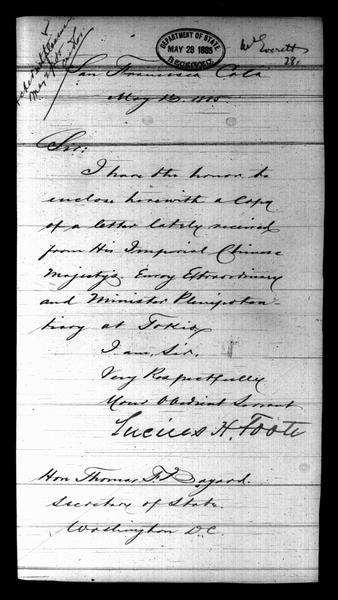 DEPARTMENT OF STATE
MAY 28 1885
RECEIVED
Mr Everett
28.
San Francisco Cala
May 18. 1885.
Sir:
I have the honor to
enclose herewith a Copy
of a letter lately received
from His Imperial Chinese
Majesty's Envoy Extraordinary
and Minister Plenipoten-
tiary at Tokio,
I am, Sir,
Very Respectfully
Your Obedient Servant
Lucius H. Foote
Hon Thomas F. Bayard.
Secretary of State.
Washington D.C.